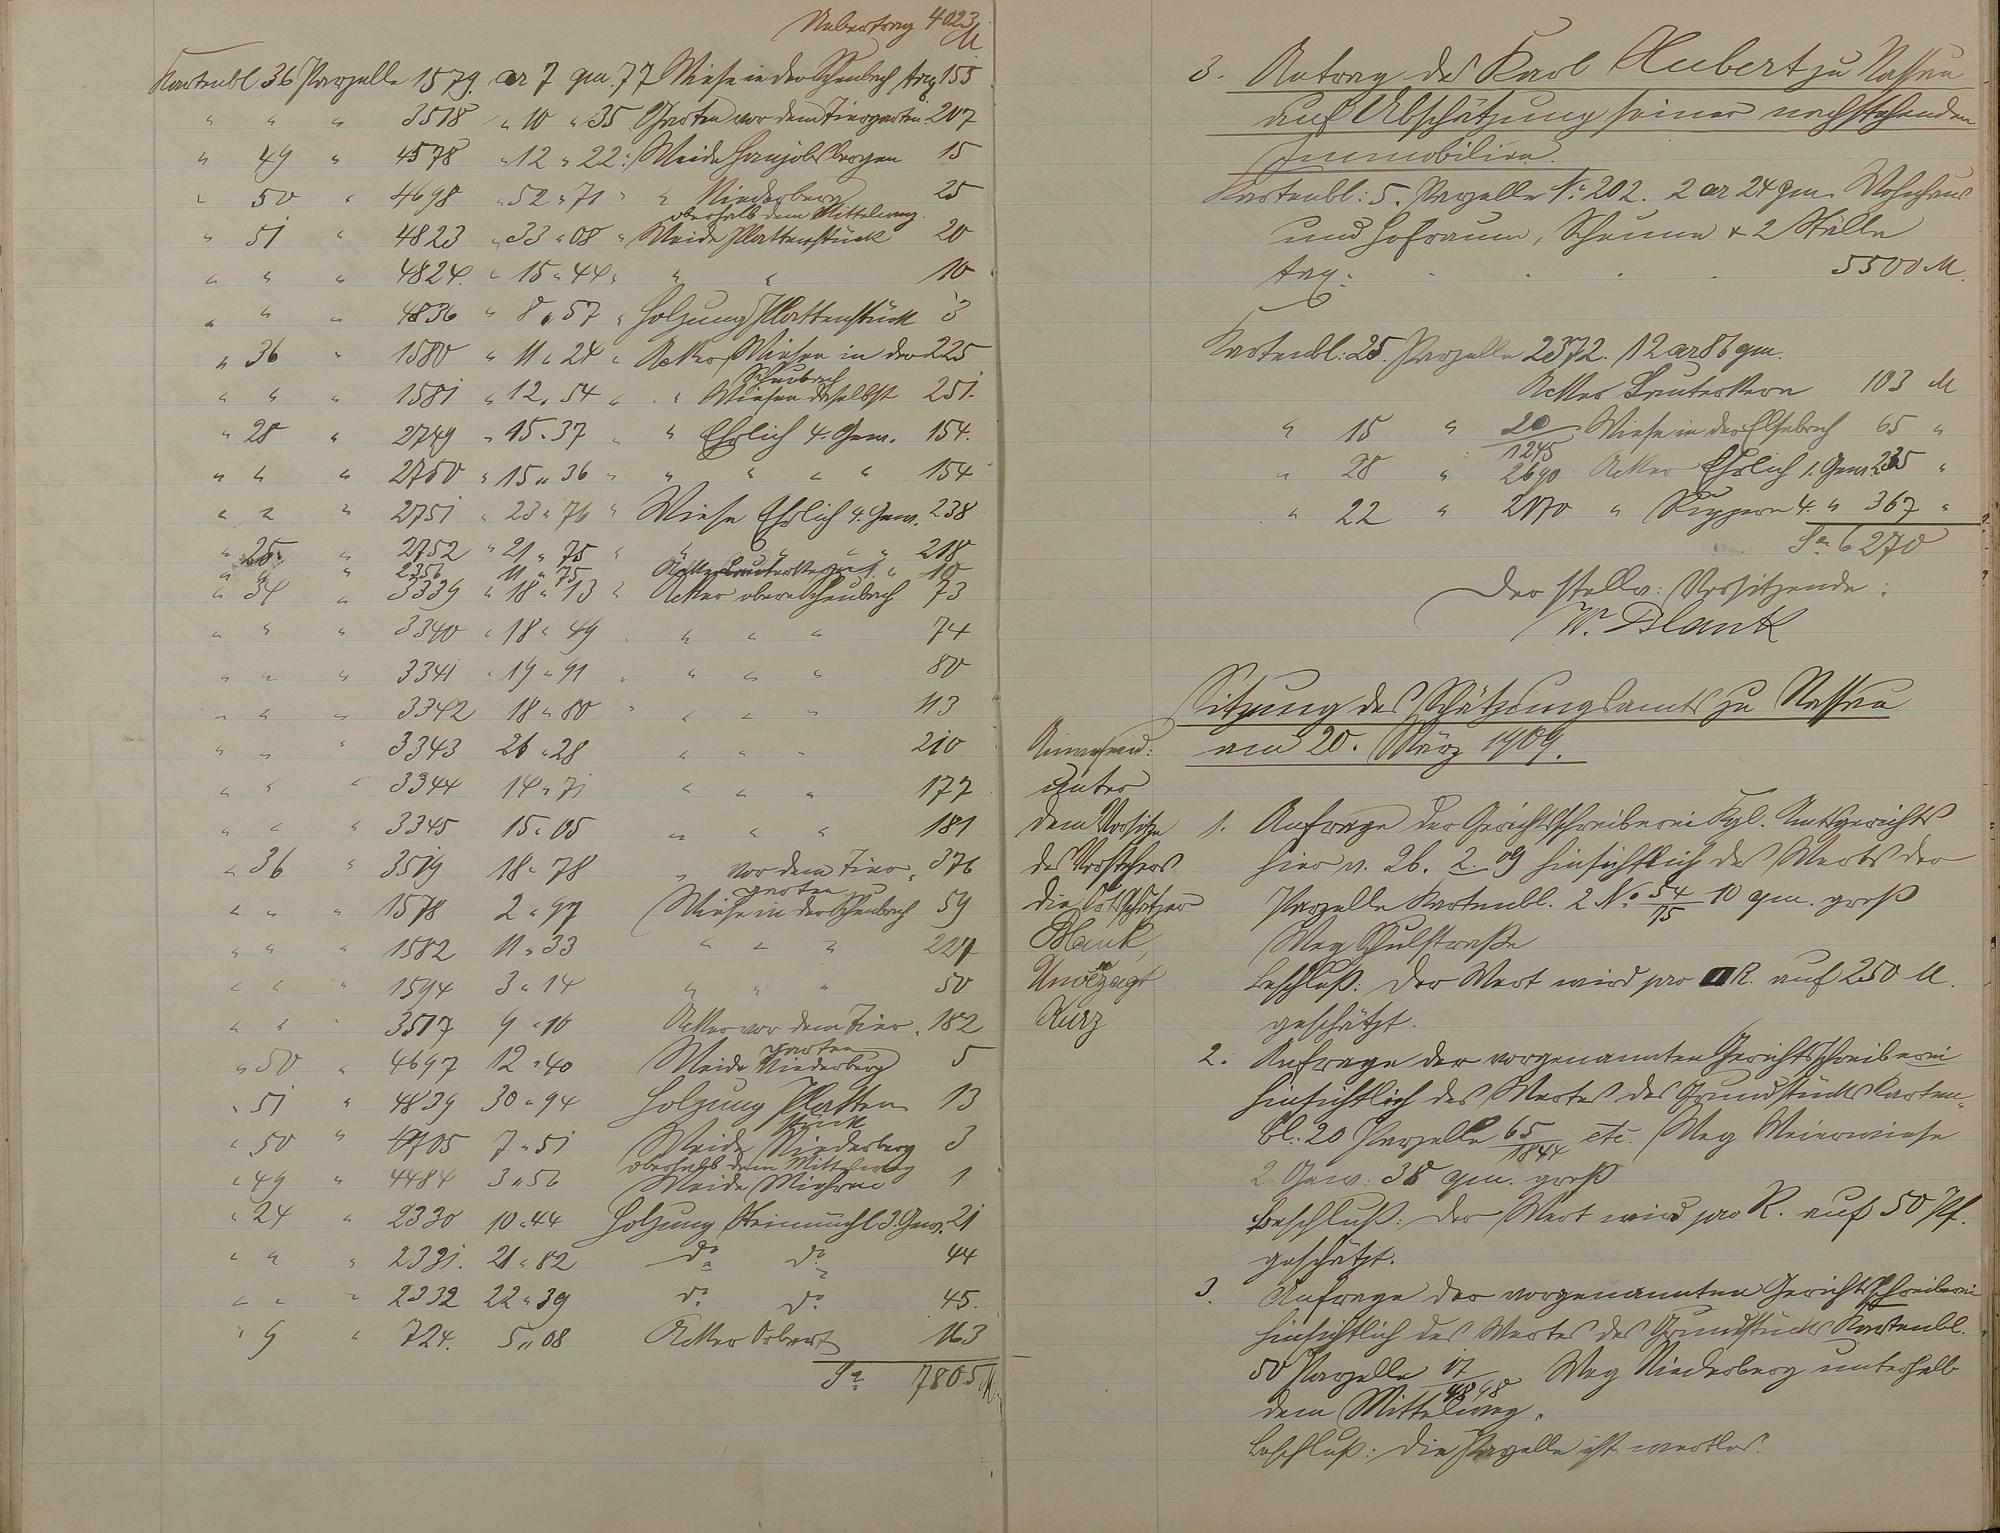 Uebertrag 4023 M
Kartenbl 36 Parzelle 1579. ar 7 qm. 77 Wiese in der Scheubach Tax 155
" " " 3518 " 10 " 35 Garten vor dem Tiergarten. 207
" 49 " 4578 " 12 " 22 " Weide 15
" 50 " 4698 " 52 " 71 " " Niederberg 25
oberhalb dem Mittelweg.
" 51 " 4823 " 33 " 08 " Weide Plattenstück 20
" " " 4824. " 15 " 44 " " " 10
" " " 4836 " 8 " 57 " Holzung Plattenstück 3
" 36 " 1580 " 11 " 24 " Acker Wiesen in der 225
Scheubach
" " " 1581 " 12 " 54 " " Wiesen daselbst 251.
" 28 " 2749 " 15 " 37 " " Ehrlich 4. Gew. 154.
" " " 2750 " 15 " 36 " " " " " 154
" " " 2751 " 23 " 76 " Wiese Ehrlich 4. Gew. 238
" " " 2752 " 21 " 75 " " " " " 218
" 25 " 2356 11 " 75 Acker Lauterkern 1. " 10
" 34 " 3339 " 18 " 13 " Acker obere Scheubach 73
" " " 3340 " 18 " 49 " " " " 74
" " " 3341 " 19 " 91 " " " " 80
" " " 3342 18 " 80 " " " " 113
" " " 3343 26 " 28 " " " 210
" " " 3344 14 " 71 " " " 177
" " " 3345 15 " 05 " " " 181
" 36 " 3519 18 " 78 " vor dem Tier- " 376
garten
" " " 1578 2 " 97 Wiese in der Scheubach 59
" " " 1582 11 " 33 " " " 227
" " " 1594 3 " 14 " " " 50
" " " 3517 9 " 10 Acker vor dem Tier- " 182
garten
" 50 " 4697 12 " 40 Weide Niederberg 5
" 51 " 4839 30 " 94 Holzung Platten- 13
stück
" 50 " 4705 7 " 51 Weide Niederberg 3
oberhalb dem Mittelweg
" 49 " 4484 3 " 56 Weide 1
" 24 " 2330 10 " 44 Holzung 3. Gew. 21
" " " 2331. 21 " 82 do do 44
" " " 2332 22 " 39 do do 45.
" 9 " 724. 5 " 08 Acker 163
Sa. 7805 M
3. Antrag des Karl Hubert zu Nassau
auf Abschätzung seiner nachstehenden
Immobilien.
Kartenbl: 5. Parzelle No: 202. 2 ar 24 qm. Wohnhaus
und Hofraum, Scheune & 2 Ställe
Tax: . . . . 5500 M.
Kartenbl: 25. Parzelle 2372. 12 ar 86 qm.
Acker Lauterkern 103 M
" 15 " 20/1245 Wiese in der Elsebach 65 "
" 28 " 2690 Acker Ehrlich 1. Gew. 235 "
" 22 " 2170 " 4. " 367 "
Sa. 6270
Der stellv: Vorsitzende:
W. Blank
Sitzung des Schätzungsamts zu Nassau
am 20. März 1909.
Anwesend:
unter
dem Vorsitze
des Vorstehers
die Ortschätzer
Blank,
Unverzagt
Kurz
1. Anfrage der Gerichtsschreiberei Kgl. Amtsgerichts
hier v. 26. 2. 09 hinsichtlich des Werts der
Parzelle Kartenbl. 2 No 54/75 10 qm. groß
Weg Schulstraße
Beschluß: Der Wert wird pro R. auf 250 M.
geschätzt.
2. Anfrage der vorgenannten Gerichtsschreiberei
hinsichtlich des Wertes des Grundstücks Karten-
bl. 20 Parzelle 65/1844 etc. Weg Weierwiese
2. Gew. 38 qm. groß
Beschluß: Der Wert wird pro R. auf 50 Pf.
geschätzt.
3. Anfrage der vorgenannten Gerichtsschreiberei
hinsichtlich des Wertes des Grundstücks Kartenbl.
50 Parzelle 17/4848 Weg Niederberg unterhalb
dem Mittelweg.
Beschluß: Die Parzelle ist wertlos.